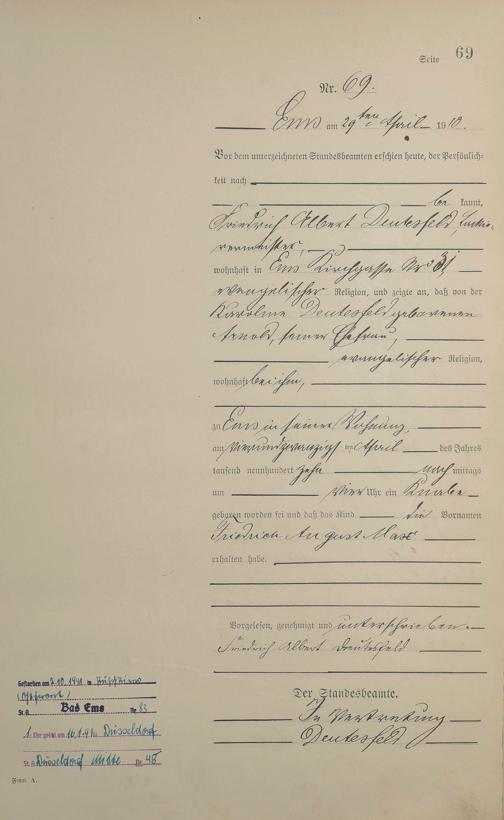 Seite 69
Nr. 69.
Ems am 29ten April 1910.
Vor dem unterzeichneten Standesbeamten erschien heute, der Persönlich-
keit nach
be kannt,
Friedrich Albert Deutesfeld, Lackie-
rermeister,
wohnhaft in Ems Kirchgasse Nro 31
evangelischer Religion, und zeigte an, daß von der
Karoline Deutesfeld geborenen
Arnold, seiner Ehefrau,
evangelischer Religion,
wohnhaft bei ihm,
zu Ems in seiner Wohnung,
am vierundzwanzigsten April des Jahres
tausend neunhundert zehn nach mittags
um vier Uhr ein Knabe
geboren worden sei und daß das Kind die Vornamen
Friedrich August Max
erhalten habe.
Vorgelesen, genehmigt und unterschrieben.
Friedrich Albert Deutesfeld
Der Standesbeamte.
In Vertretung
Deutesfeld
Gestorben am 2.10.1941 in
St. A. Bad Ems Nr. 83
1. Ehe geschl. am 16.1.41 in Düsseldorf
St. A. Düsseldorf-Mitte Nr. 48
Form. A.